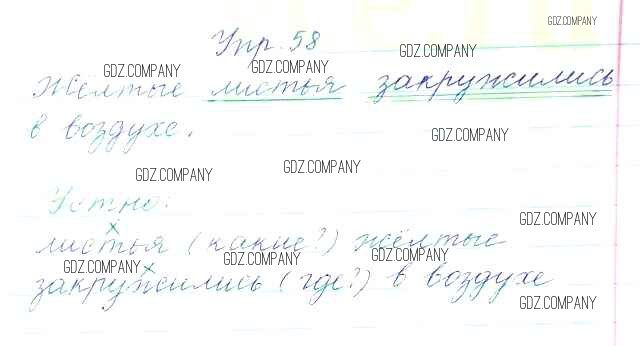 GDZ.COMPANY
Упр. 58
GDZ.COMPANY
GDZ.COMPANY
GDZ.COMPANY
Жёлтые листья закружились
в воздухе.
GDZ.COMPANY
GDZ.COMPANY
GDZ.COMPANY
Устно:
GDZ.COMPANY
х
листья (какие?) жёлтые
GDZ.COMPANY
GDZ.COMPANY
GDZ.COMPANY
х
закружились (где?) в воздухе
GDZ.COMPANY